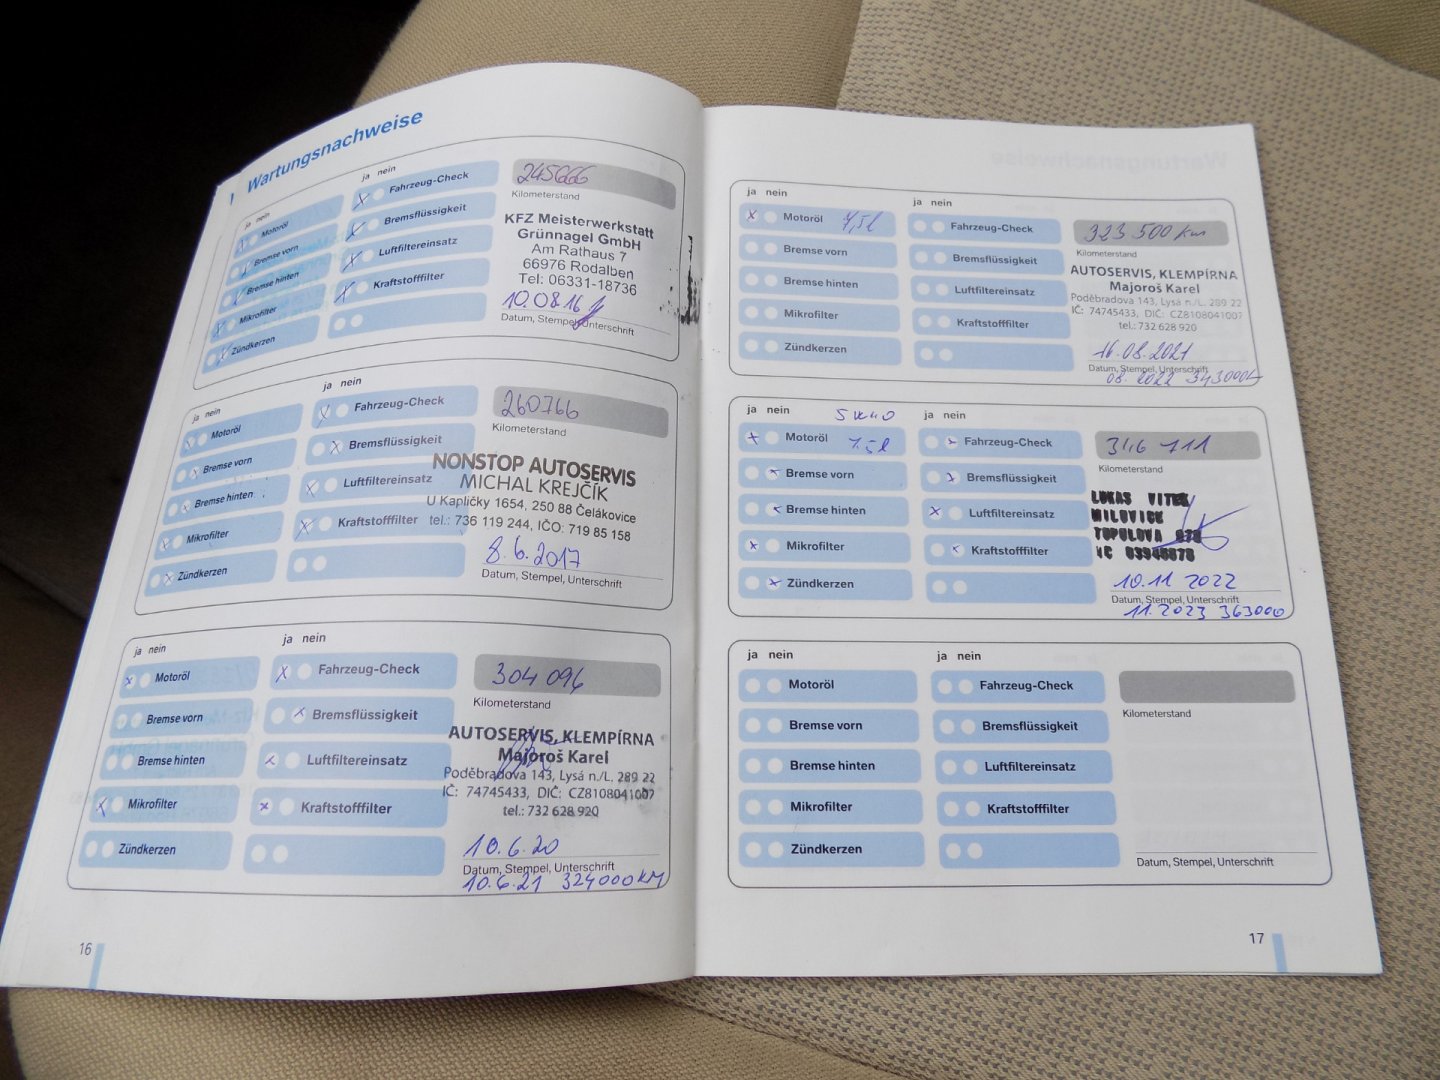 Wartungsnachweise
ja nein
ja nein
Motoröl
Bremse vorn
Bremse hinten
Mikrofilter
Zündkerzen
Fahrzeug-Check
Bremsflüssigkeit
Luftfiltereinsatz
Kraftstofffilter
245666
Kilometerstand
KFZ Meisterwerkstatt
Grünnagel GmbH
Am Rathaus 7
66976 Rodalben
Tel: 06331-18736
10.08.16
Datum, Stempel, Unterschrift
ja nein
ja nein
Motoröl
Bremse vorn
Bremse hinten
Mikrofilter
Zündkerzen
Fahrzeug-Check
Bremsflüssigkeit
Luftfiltereinsatz
Kraftstofffilter
260766
Kilometerstand
NONSTOP AUTOSERVIS
MICHAL KREJČÍK
U Kapličky 1654, 250 88 Čelákovice
tel.: 736 119 244, IČO: 719 85 158
8.6.2017
Datum, Stempel, Unterschrift
ja nein
ja nein
Motoröl
Bremse vorn
Bremse hinten
Mikrofilter
Zündkerzen
Fahrzeug-Check
Bremsflüssigkeit
Luftfiltereinsatz
Kraftstofffilter
304 096
Kilometerstand
AUTOSERVIS, KLEMPÍRNA
Majoroš Karel
Poděbradova 143, Lysá n./L. 289 22
IČ: 74745433, DIČ: CZ8108041007
tel.: 732 628 920
10.6.20
Datum, Stempel, Unterschrift
10.6.21 324000KM
16
ja nein
ja nein
Motoröl 7,5l
Bremse vorn
Bremse hinten
Mikrofilter
Zündkerzen
Fahrzeug-Check
Bremsflüssigkeit
Luftfiltereinsatz
Kraftstofffilter
323 500 km
Kilometerstand
AUTOSERVIS, KLEMPÍRNA
Majoroš Karel
Poděbradova 143, Lysá n./L. 289 22
IČ: 74745433, DIČ: CZ8108041007
tel.: 732 628 920
16.08.2021
Datum, Stempel, Unterschrift
08. 2022 343000
ja nein
ja nein
Motoröl 7.5l
Bremse vorn
Bremse hinten
Mikrofilter
Zündkerzen
Fahrzeug-Check
Bremsflüssigkeit
Luftfiltereinsatz
Kraftstofffilter
346 711
Kilometerstand
LUKAS VITEK
MILOVICE
TOPOLOVA
10.11 2022
Datum, Stempel, Unterschrift
11.2023 363000
ja nein
ja nein
Motoröl
Bremse vorn
Bremse hinten
Mikrofilter
Zündkerzen
Fahrzeug-Check
Bremsflüssigkeit
Luftfiltereinsatz
Kraftstofffilter
Kilometerstand
Datum, Stempel, Unterschrift
17